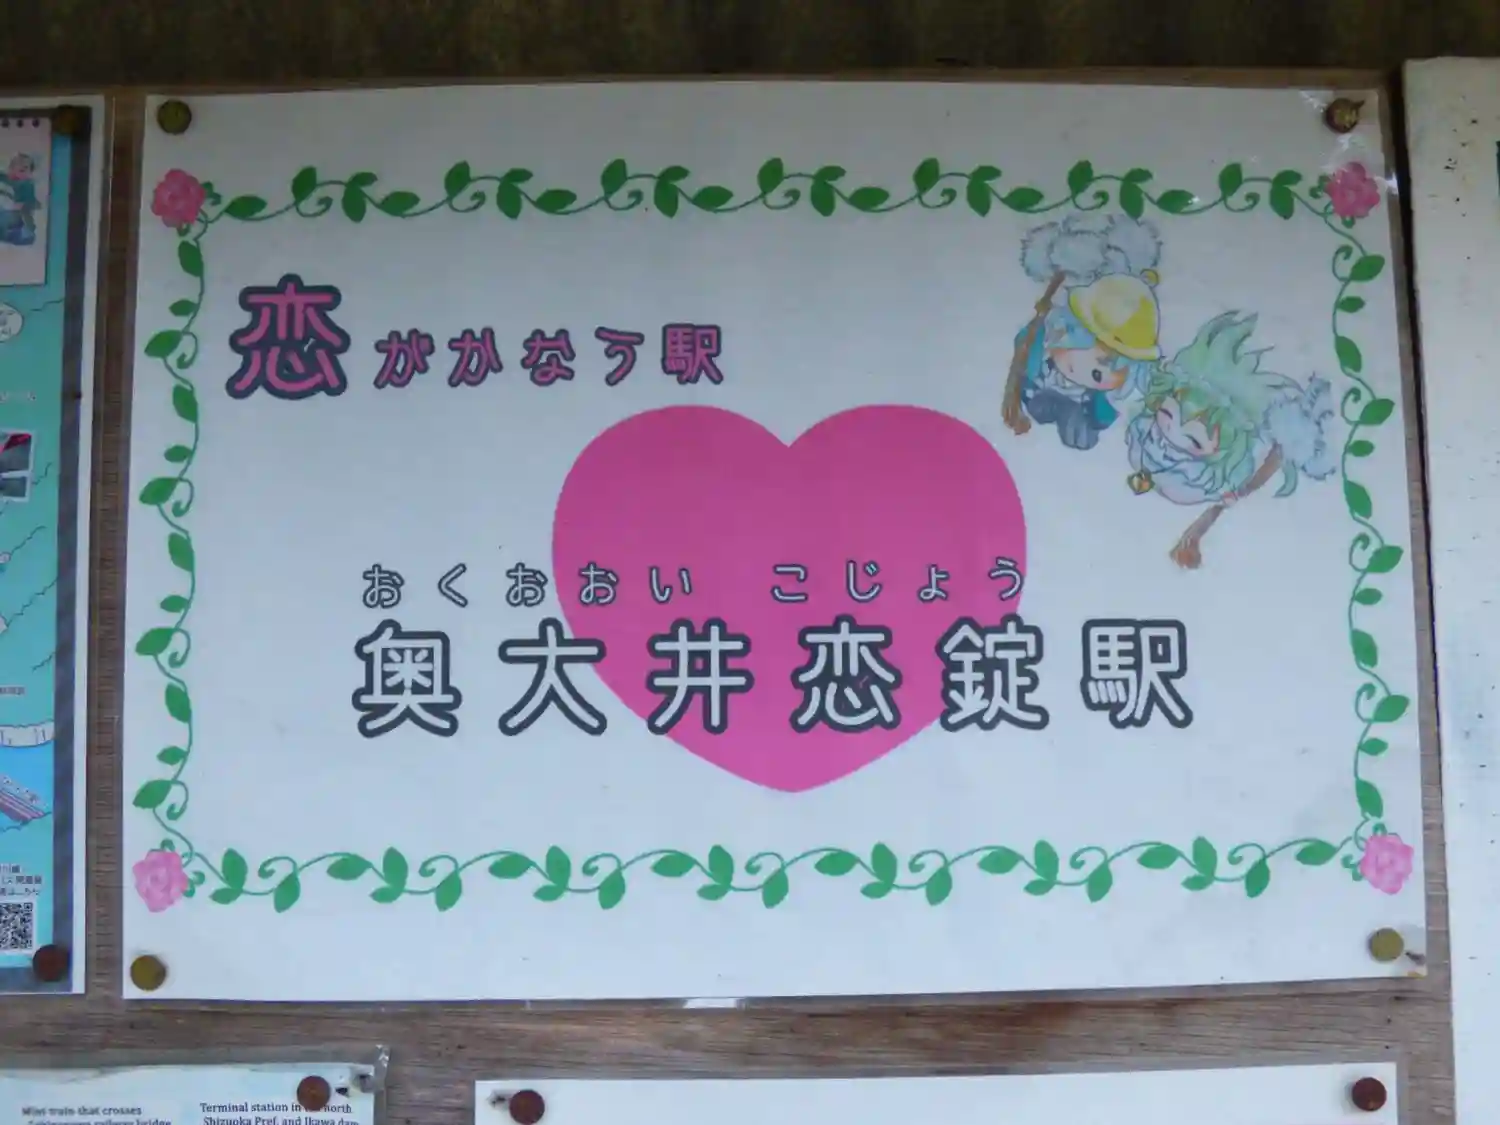 恋がかなう駅
おくおおい こじょう
奥大井恋錠駅
Mini train that crosses
Terminal station in the north
Shizuoka Pref. and Ikawa dam